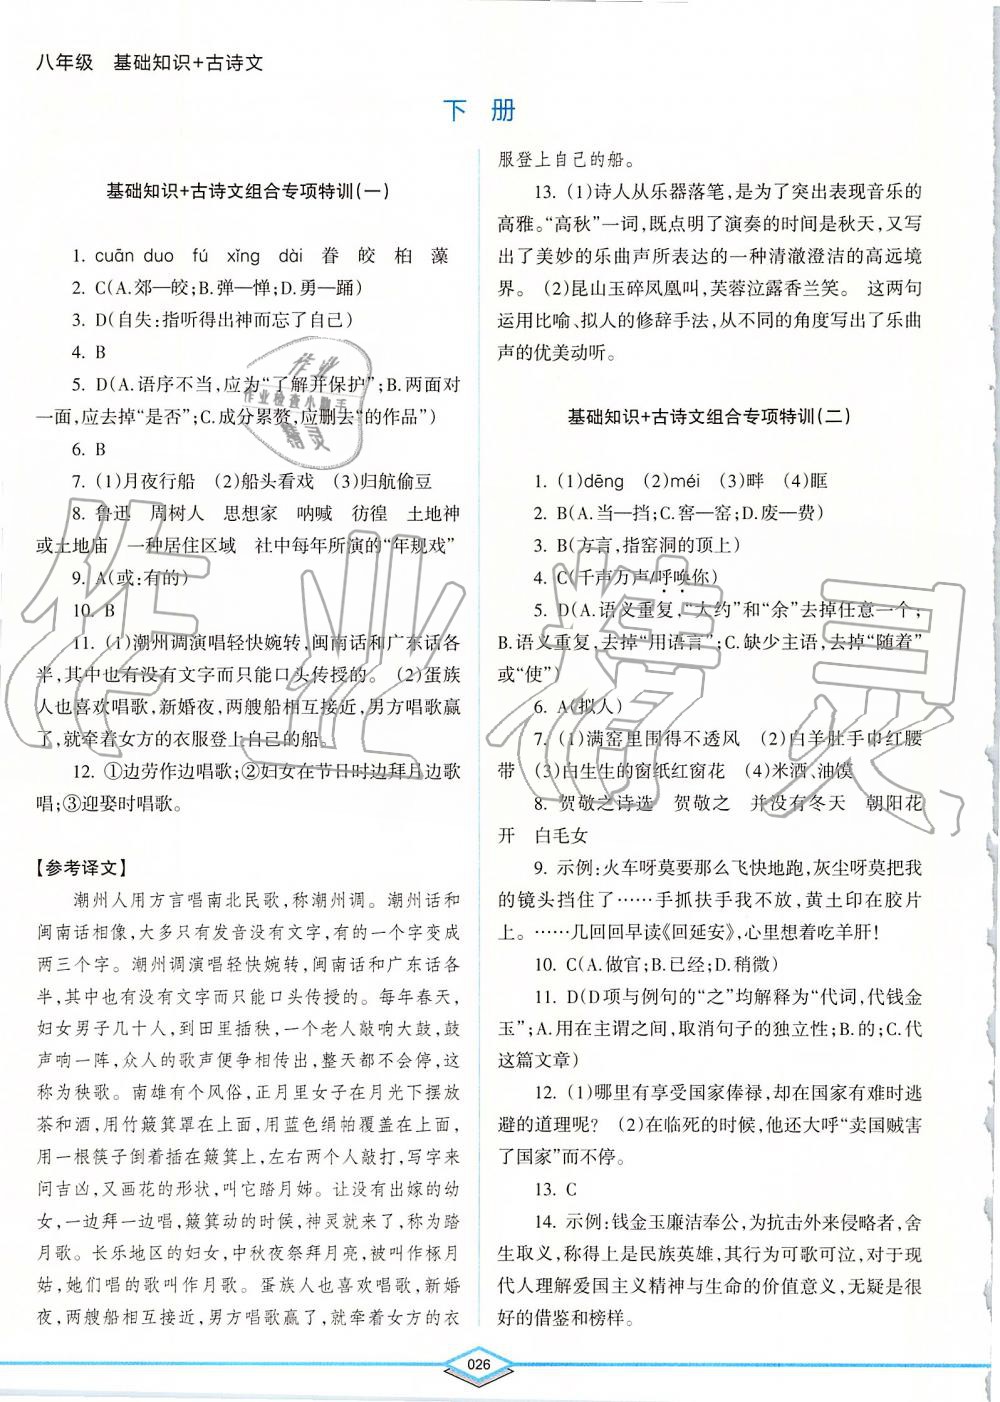 八年级　基础知识+古诗文
下　册
基础知识+古诗文组合专项特训(一)
1. cuān duo　fú　xǐng　dài　眷　皎　柏　藻
2. C(A.郊—皎;B.弹—惮;D.勇—踊)
3. D(自失:指听得出神而忘了自己)
4. B
5. D(A.语序不当,应为“了解并保护”;B.两面对
一面,应去掉“是否”;C.成分累赘,应删去“的作品”)
6. B
7. (1)月夜行船　(2)船头看戏　(3)归航偷豆
8. 鲁迅　周树人　思想家　呐喊　彷徨　土地神
或土地庙　一种居住区域　社中每年所演的“年规戏”
9. A(或:有的)
10. B
11. (1)潮州调演唱轻快婉转,闽南话和广东话各
半,其中也有没有文字而只能口头传授的。　(2)蛋族
人也喜欢唱歌,新婚夜,两艘船相互接近,男方唱歌赢
了,就牵着女方的衣服登上自己的船。
12. ①边劳作边唱歌;②妇女在节日时边拜月边歌
唱;③迎娶时唱歌。
【参考译文】
潮州人用方言唱南北民歌,称潮州调。潮州话和
闽南话相像,大多只有发音没有文字,有的一个字变成
两三个字。潮州调演唱轻快婉转,闽南话和广东话各
半,其中也有没有文字而只能口头传授的。每年春天,
妇女男子几十人,到田里插秧,一个老人敲响大鼓,鼓
声响一阵,众人的歌声便争相传出,整天都不会停,这
称为秧歌。南雄有个风俗,正月里女子在月光下摆放
茶和酒,用竹簸箕罩在上面,用蓝色绢帕覆盖在上面,
用一根筷子倒着插在簸箕上,左右两个人敲打,写字来
问吉凶,又画花的形状,叫它踏月姊。让没有出嫁的幼
女,一边拜一边唱,簸箕动的时候,神灵就来了,称为踏
月歌。长乐地区的妇女,中秋夜祭拜月亮,被叫作椓月
姑,她们唱的歌叫作月歌。蛋族人也喜欢唱歌,新婚
夜,两艘船相互接近,男方唱歌赢了,就牵着女方的衣
服登上自己的船。
13. (1)诗人从乐器落笔,是为了突出表现音乐的
高雅。“高秋”一词,既点明了演奏的时间是秋天,又写
出了美妙的乐曲声所表达的一种清澈澄洁的高远境
界。　(2)昆山玉碎凤凰叫,芙蓉泣露香兰笑。　这两句
运用比喻、拟人的修辞手法,从不同的角度写出了乐曲
声的优美动听。
基础知识+古诗文组合专项特训(二)
1. (1)dēng　(2)méi　(3)畔　(4)眶
2. B(A.当—挡;C.窖—窑;D.废—费)
3. B(方言,指窑洞的顶上)
4. C(千声万声/呼唤你)
5. D(A.语义重复,“大约”和“余”去掉任意一个;
B.语义重复,去掉“用语言”;C.缺少主语,去掉“随着”
或“使”)
6. A(拟人)
7. (1)满窑里围得不透风　(2)白羊肚手巾红腰
带　(3)白生生的窗纸红窗花　(4)米酒、油馍
8. 贺敬之诗选　贺敬之　并没有冬天　朝阳花
开　白毛女
9. 示例:火车呀莫要那么飞快地跑,灰尘呀莫把我
的镜头挡住了……手抓扶手我不放,黄土印在胶片
上。……几回回早读《回延安》,心里想着吃羊肝!
10. C(A.做官;B.已经;D.稍微)
11. D(D项与例句的“之”均解释为“代词,代钱金
玉”;A.用在主谓之间,取消句子的独立性;B.的;C.代
这篇文章)
12. (1)哪里有享受国家俸禄,却在国家有难时逃
避的道理呢?　(2)在临死的时候,他还大呼“卖国贼害
了国家”而不停。
13. C
14. 示例:钱金玉廉洁奉公,为抗击外来侵略者,舍
生取义,称得上是民族英雄,其行为可歌可泣,对于现
代人理解爱国主义精神与生命的价值意义,无疑是很
好的借鉴和榜样。
026
作业
作业检查小助手
精灵
作业精灵